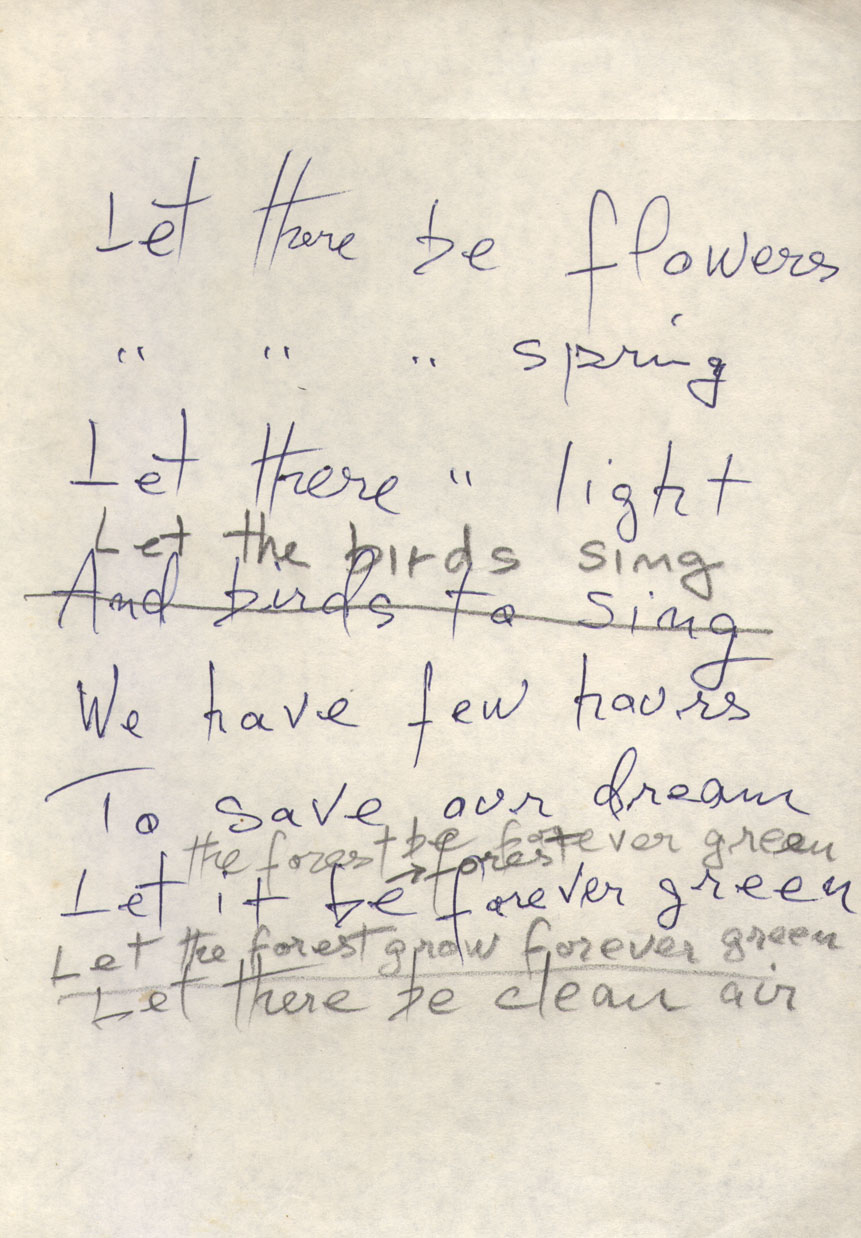 Let there be flowers
" " " spring
Let there " light
Let the birds sing
And birds to sing
We have few hours
To save our dream
the forest be forever green
→ forest
Let it be forever green
Let the forest grow forever green
Let there be clean air